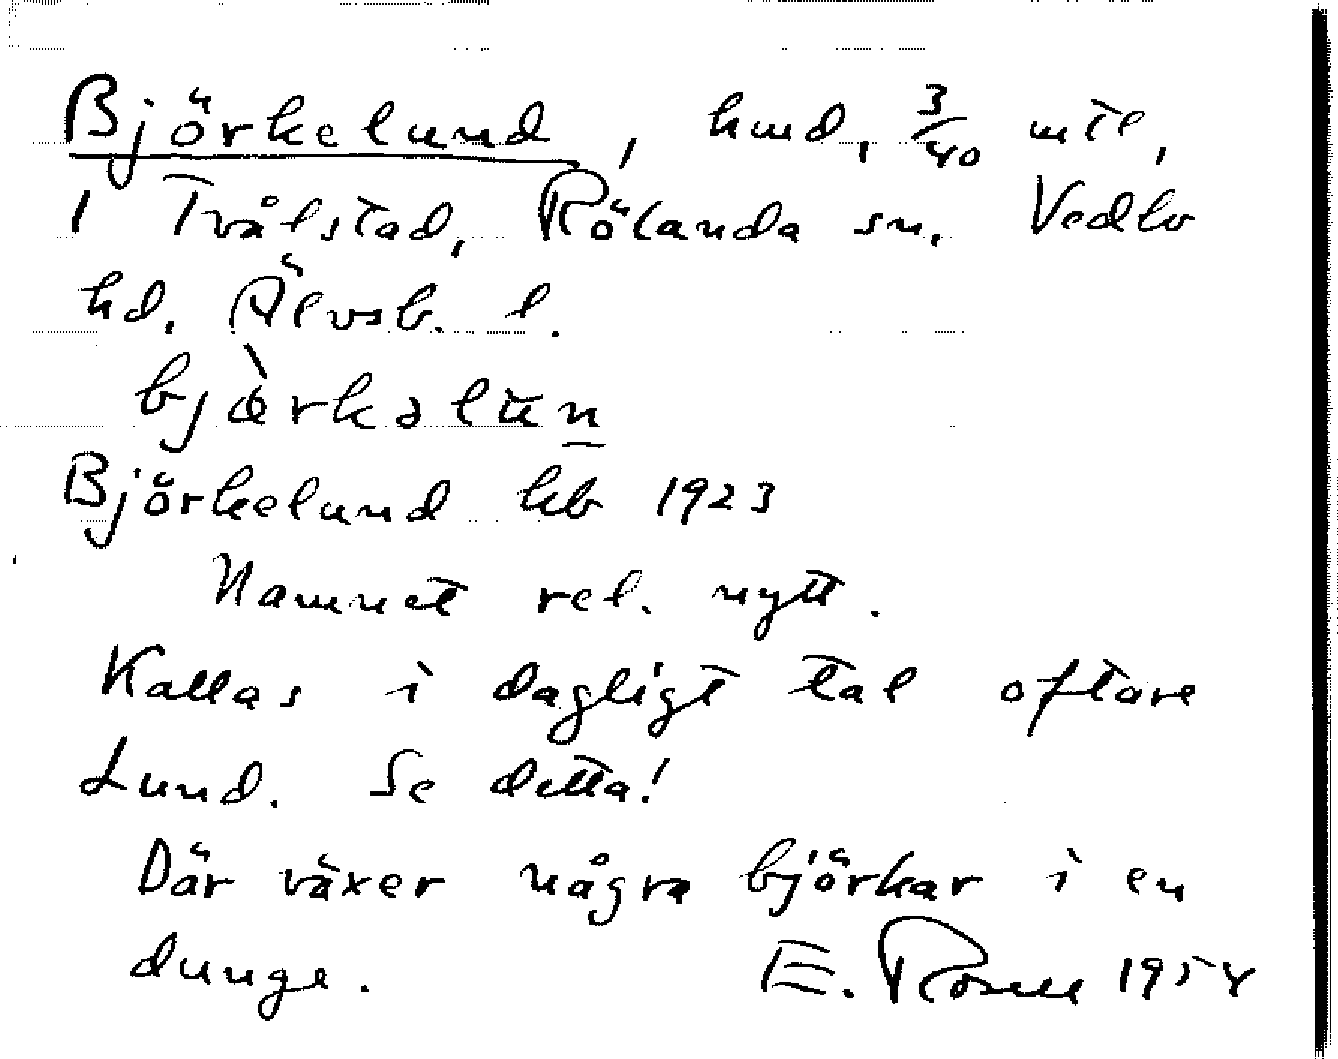 Björkelund, hmd, 3/40 mtl,
i Tvålstad, Rölanda sn, Vedbo
hd, Älvsb. l.
bjö̀rkəlun
Björkelund kb 1923
Namnet rel. nytt.
Kallas i dagligt tal oftare
Lund. Se detta!
Där växer några björkar i en
dunge. E. Rosell 1954